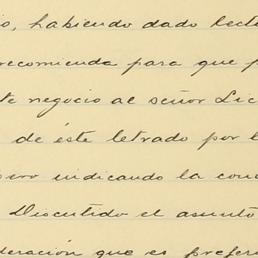 io, habiendo dado lectu
recomienda para que p
te negocio al señor Lic
de éste letrado por l
pero indicando la con
Discutido el asunto
deración que es prefer